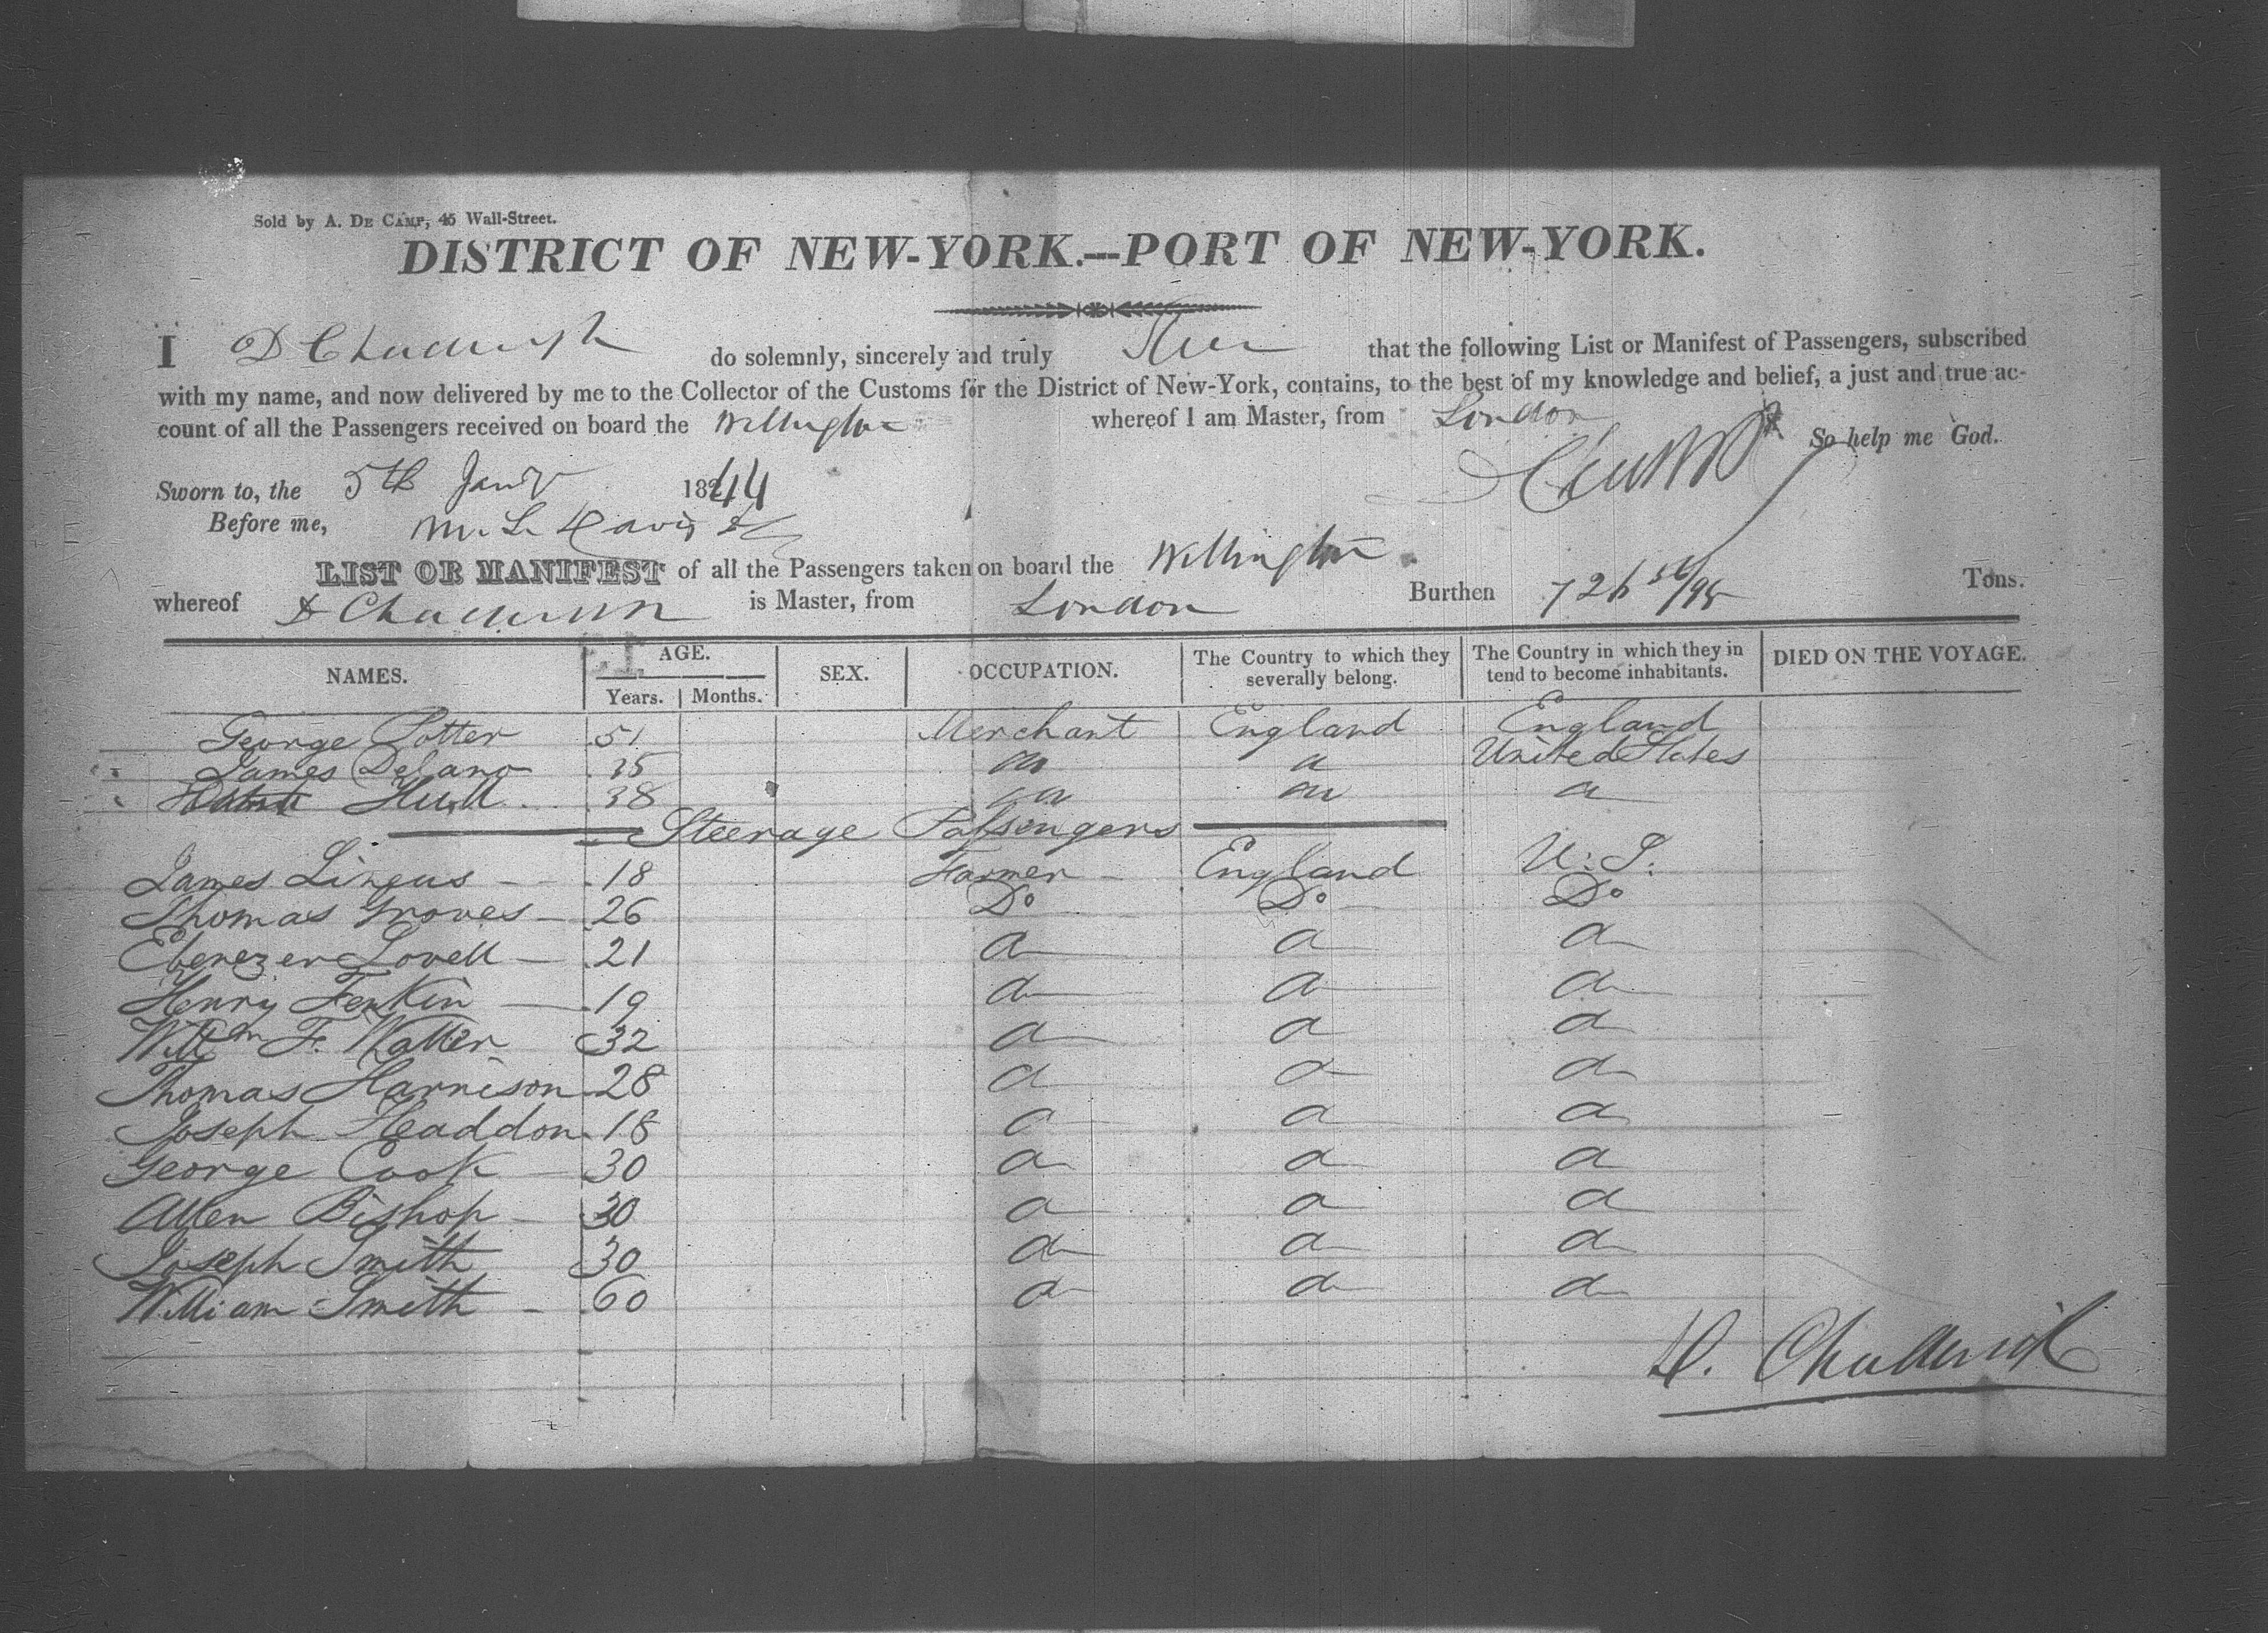 Sold by A. DE CAMP, 45 Wall-Street.
DISTRICT OF NEW-YORK.—PORT OF NEW-YORK.
I D Chadwick do solemnly, sincerely and truly that the following List or Manifest of Passengers, subscribed
with my name, and now delivered by me to the Collector of the Customs for the District of New-York, contains, to the best of my knowledge and belief, a just and true ac-
count of all the Passengers received on board the Wellington whereof I am Master, from London
So help me God.
D Chadwick
Sworn to, the 5th Jany 1844
Before me, M. L. Davis
LIST OR MANIFEST of all the Passengers taken on board the Wellington
whereof D Chadwick is Master, from London Burthen 726 56/95 Tons.
NAMES. AGE. Years. Months. SEX. OCCUPATION. The Country to which they severally belong. The Country in which they in tend to become inhabitants. DIED ON THE VOYAGE.
George Potter 51 Merchant England England
James Delano 35 a United States
Hull 38 a
Steerage Passengers
James Lingus 18 Farmer England U. S.
Thomas Groves 26 Do Do Do
Ebenezer Lovell 21 a a a
Henry Fenkin 19 a a a
Willm F. Waller 32 a a a
Thomas Harrison 28 a a a
Joseph Headdon 18 a a a
George Cook 30 a a a
Allen Bishop 30 a a a
Joseph Smith 30 a a a
William Smith 60 a a a
D. Chadwick